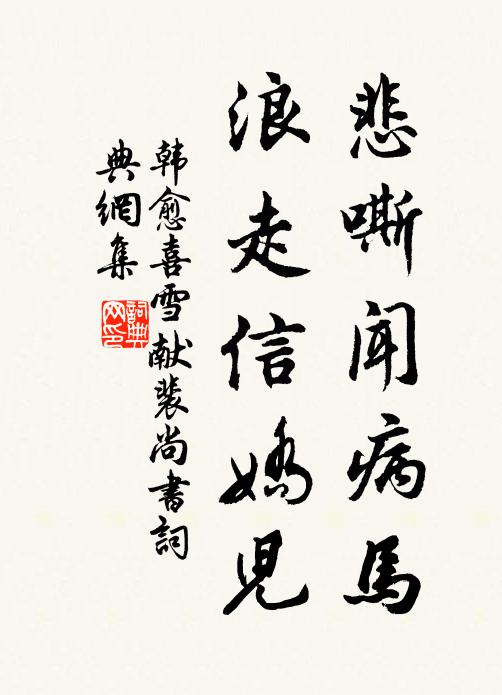 悲嘶闻病馬
浪走信嬌児
韩愈喜雪献裴尚書詞
典網集
詞典
网印